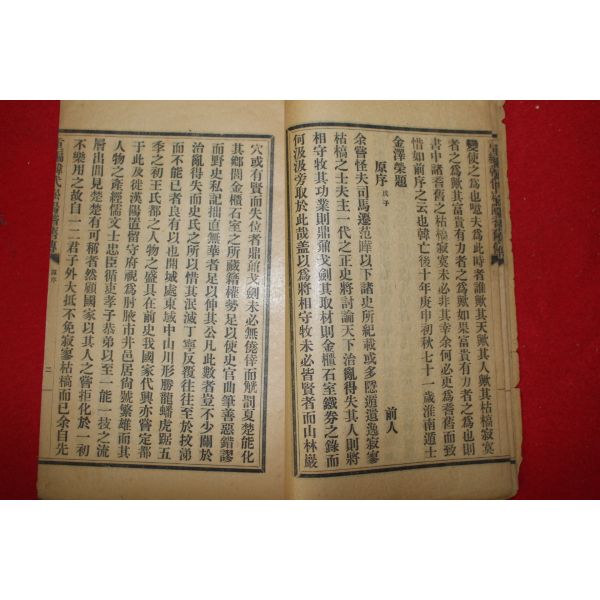 變使之爲也噫夫爲此時者誰歟其天歟其人歟其枯槁寂寞
者之爲歟其富貴有力者之爲歟如果富貴有力者之爲也則
書中諸耆舊之枯槁寂寞未必非其幸余何必更爲耆舊而致
惜如前序之云也韓亡後十年庚申初秋七十一歲淮南遁士
金澤榮題
原序 戊子 前人
余嘗怪夫司馬遷范曄以下諸史所紀載或多隱遁逸寂寥
枯槁之士夫主一代之正史將討論天下治亂得失其人則將
相守牧其功業則鼎鼐戈劍其取材則金櫃石室鐵券之錄而
何汲汲旁取於此哉盖以爲將相守牧未必皆賢者而山林巖
穴或有賢而失位者鼎鼐戈劍未必無僥倖而觥罰夏楚能化
其鄉閭金櫃石室之所藏籍權勢足以使史官曲筆善惡錯謬
而野史私記拙直無華者足以伸其公凡此數者豈不少關於
治亂得失而史氏之所以惜其泯滅丁寧反覆往往至於技涕
而不能已者良有以也開城處東域中山川形勝龍蟠虎踞五
季之初王氏都之人物之盛具在前史我國家代興亦嘗定都
于此及徙漢陽置留守府視爲肘腋市井邑居尙號繁雄而其
人物之產經儒文士忠臣循吏孝子恭弟以至一能一技之流
層出間見楚楚有可稱者然顧國家以其人之嘗拒化於一初
不樂用之故自一二君子外大抵不免寂寥枯槁而已余自先
原序
二